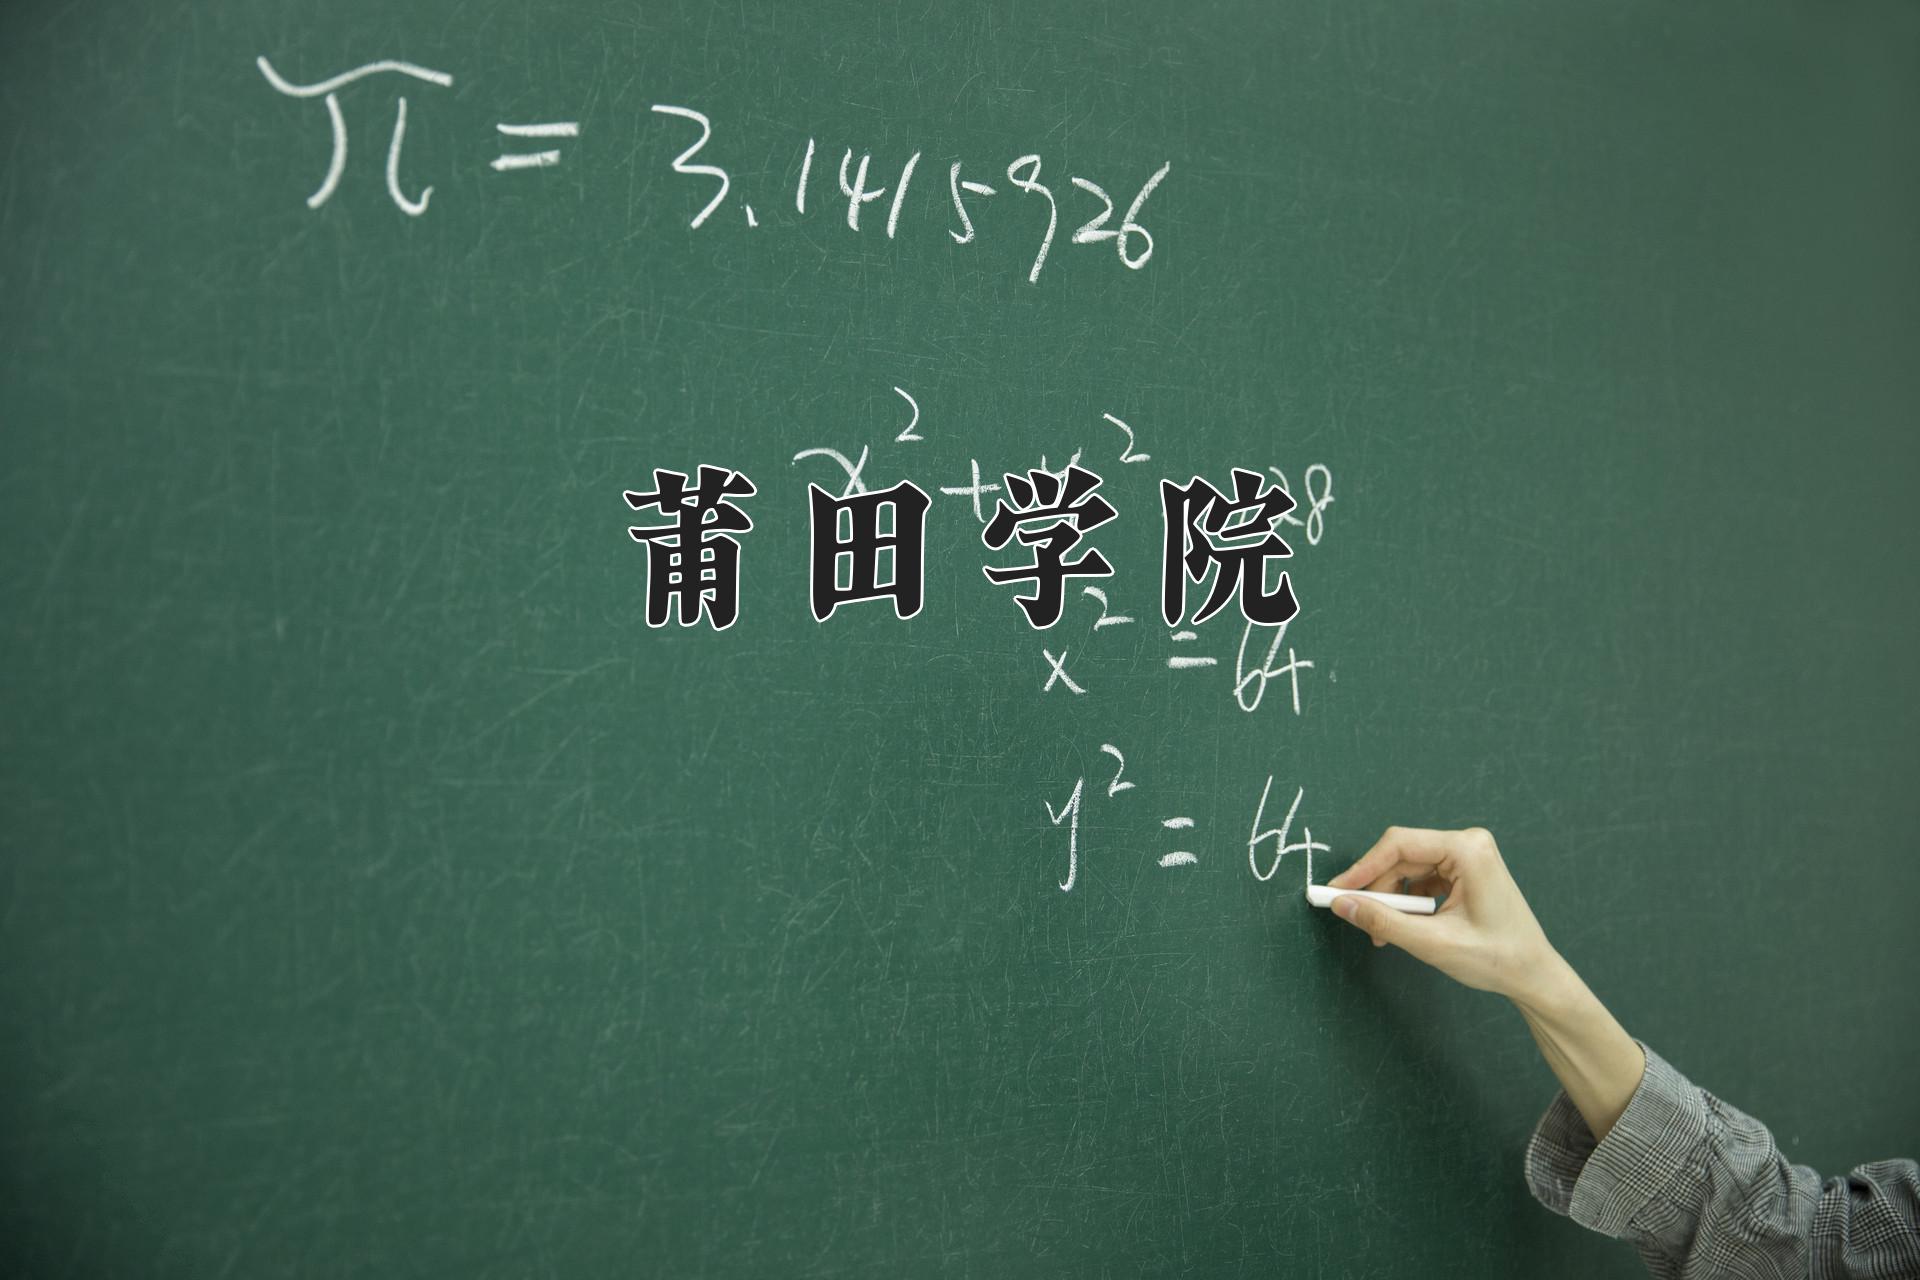 π = 3.1415926
x² + y² 28
莆田学院
x² = 64
y² = 64